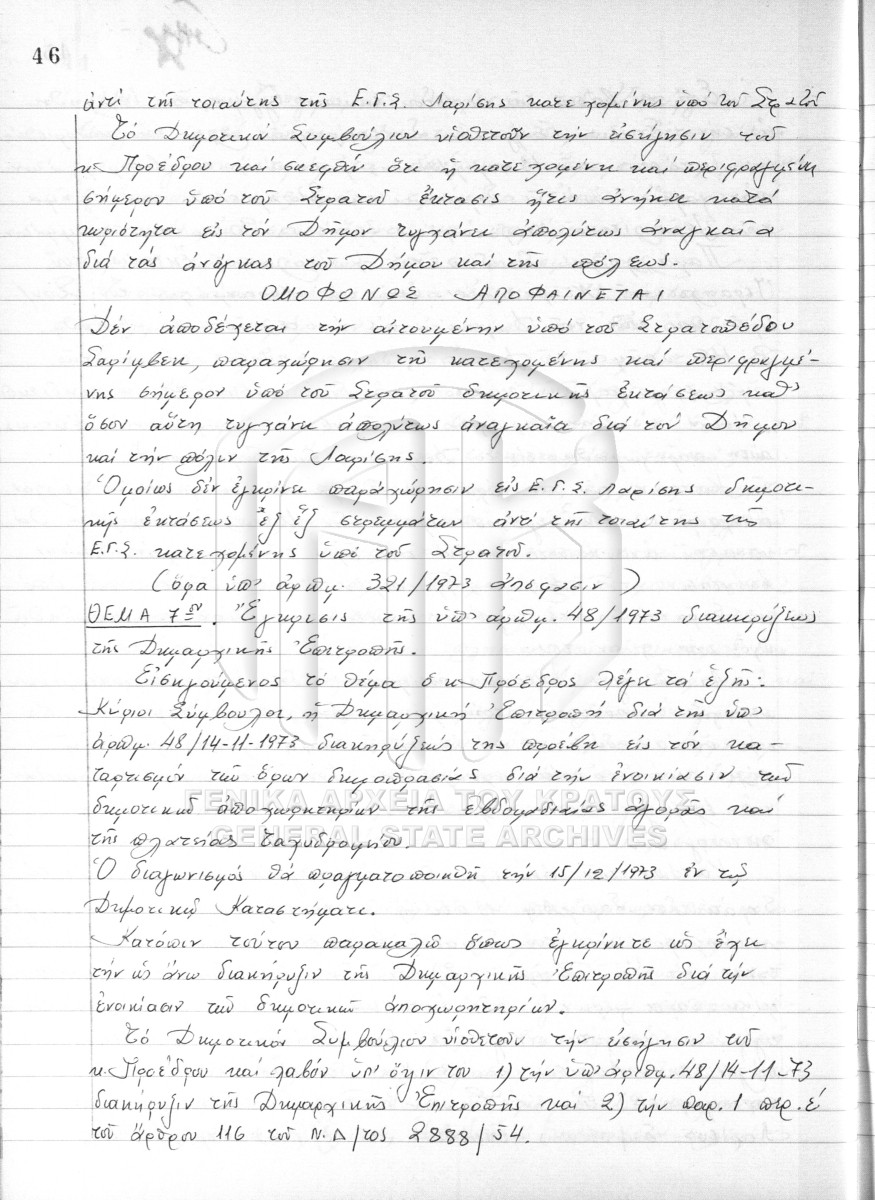 46
ἀντί τῆς τοιαύτης τῆς Ε.Γ.Σ. Λαρίσης κατεχομένης ὑπό τοῦ Στρατοῦ
Τό Δημοτικόν Συμβούλιον υἱοθετοῦν τήν εἰσήγησιν τοῦ
κ. Προέδρου καί σκεφθέν ὅτι ἡ κατεχομένη καί περιφραγμένη
σήμερον ὑπό τοῦ Στρατοῦ ἔκτασις ἥτις ἀνήκει κατά
κυριότητα εἰς τόν Δῆμον τυγχάνει ἀπολύτως ἀναγκαῖα
διά τάς ἀνάγκας τοῦ Δήμου καί τῆς πόλεως.
ΟΜΟΦΩΝΩΣ ΑΠΟΦΑΙΝΕΤΑΙ
Δέν ἀποδέχεται τήν αἰτουμένην ὑπό τοῦ Στρατοπέδου
Σαρίμβεη, παραχώρησιν τῆς κατεχομένης καί περιφραγμέ-
νης σήμερον ὑπό τοῦ Στρατοῦ δημοτικῆς ἐκτάσεως καθ'
ὅσον αὕτη τυγχάνει ἀπολύτως ἀναγκαῖα διά τόν Δῆμον
καί τήν πόλιν τῆς Λαρίσης.
Ὁμοίως δέν ἐγκρίνει παραχώρησιν εἰς Ε.Γ.Σ. Λαρίσης δημοτι-
κῆς ἐκτάσεως ἕξ στρεμμάτων ἀντί τῆς τοιαύτης τῆς
Ε.Γ.Σ. κατεχομένης ὑπό τοῦ Στρατοῦ.
(ὅρα ὑπ' ἀριθμ. 321/1973 ἀπόφασιν)
ΘΕΜΑ 7ον. Ἔγκρισις τῆς ὑπ' ἀριθμ. 48/1973 διακηρύξεως
τῆς Δημαρχιακῆς Ἐπιτροπῆς.
Εἰσηγούμενος τό θέμα ὁ κ. Πρόεδρος λέγει τά ἑξῆς:
Κύριοι Σύμβουλοι, ἡ Δημαρχιακή Ἐπιτροπή διά τῆς ὑπ'
ἀριθμ. 48/14-11-1973 διακηρύξεώς της προέβη εἰς τόν κα-
ταρτισμόν τῶν ὅρων δημοπρασίας διά τήν ἐνοικίασιν τῶν
δημοτικῶν ἀποχωρητηρίων τῆς ἑβδομαδιαίας ἀγορᾶς καί
τῆς πλατείας Ταχυδρομείου.
Ὁ διαγωνισμός θά πραγματοποιηθῆ τήν 15/12/1973 ἐν τῷ
Δημοτικῷ Καταστήματι.
Κατόπιν τούτου παρακαλῶ ὅπως ἐγκρίνητε ὡς ἔχει
τήν ὡς ἄνω διακήρυξιν τῆς Δημαρχιακῆς Ἐπιτροπῆς διά τήν
ἐνοικίασιν τῶν δημοτικῶν ἀποχωρητηρίων.
Τό Δημοτικόν Συμβούλιον υἱοθετοῦν τήν εἰσήγησιν τοῦ
κ. Προέδρου καί λαβόν ὑπ' ὄψιν του 1) τήν ὑπ' ἀριθμ. 48/14-11-73
διακήρυξιν τῆς Δημαρχιακῆς Ἐπιτροπῆς καί 2) τήν παρ. 1 περ. ε'
τοῦ ἄρθρου 116 τοῦ Ν.Δ/τος 2888/54.
ΓΕΝΙΚΑ ΑΡΧΕΙΑ ΤΟΥ ΚΡΑΤΟΥΣ
GENERAL STATE ARCHIVES